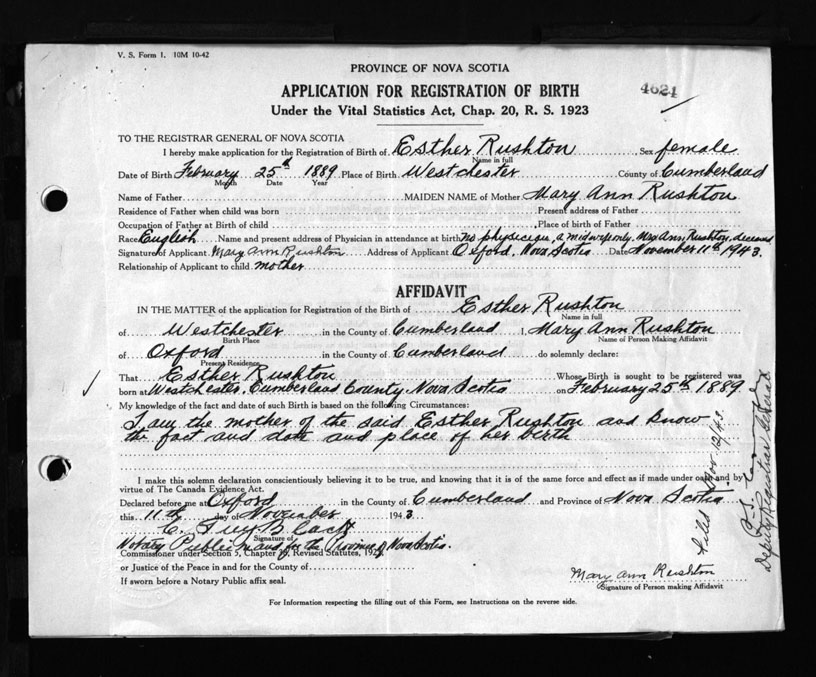 V. S. Form 1. 10M 10-42
PROVINCE OF NOVA SCOTIA
APPLICATION FOR REGISTRATION OF BIRTH
4624
Under the Vital Statistics Act, Chap. 20, R. S. 1923
TO THE REGISTRAR GENERAL OF NOVA SCOTIA
I hereby make application for the Registration of Birth of Esther Rushton Sex female
Name in full
Date of Birth February 25th 1889 Place of Birth Westchester County of Cumberland
Month Date Year
Name of Father MAIDEN NAME of Mother Mary Ann Rushton
Residence of Father when child was born Present address of Father
Occupation of Father at Birth of child Place of birth of Father
Race English Name and present address of Physician in attendance at birth no physician, a midwife only, Mrs Ann Rushton, deceased
Signature of Applicant Mary Ann Rushton Address of Applicant Oxford, Nova Scotia Date November 11th 1943.
Relationship of Applicant to child mother
AFFIDAVIT
IN THE MATTER of the application for Registration of the Birth of Esther Rushton
Name in full
of Westchester in the County of Cumberland I, Mary Ann Rushton
Birth Place Name of Person Making Affidavit
of Oxford in the County of Cumberland do solemnly declare:
Present Residence
That Esther Rushton Whose Birth is sought to be registered was
born at Westchester, Cumberland County, Nova Scotia on February 25th 1889
My knowledge of the fact and date of such Birth is based on the following Circumstances:
I am the mother of the said Esther Rushton and know
the fact and date and place of her birth
I make this solemn declaration conscientiously believing it to be true, and knowing that it is of the same force and effect as if made under oath and by
virtue of The Canada Evidence Act.
Declared before me at Oxford in the County of Cumberland and Province of Nova Scotia
this 11th day of November 1943.
Black
Signature of
Notary Public in and for the Province of Nova Scotia.
Commissioner under Section 5, Chapter Revised Statutes, 1923
or Justice of the Peace in and for the County of
If sworn before a Notary Public affix seal.
Mary Ann Rushton
Signature of Person making Affidavit
For Information respecting the filling out of this Form, see Instructions on the reverse side.
Filed Nov 12/43
Deputy Registrar General